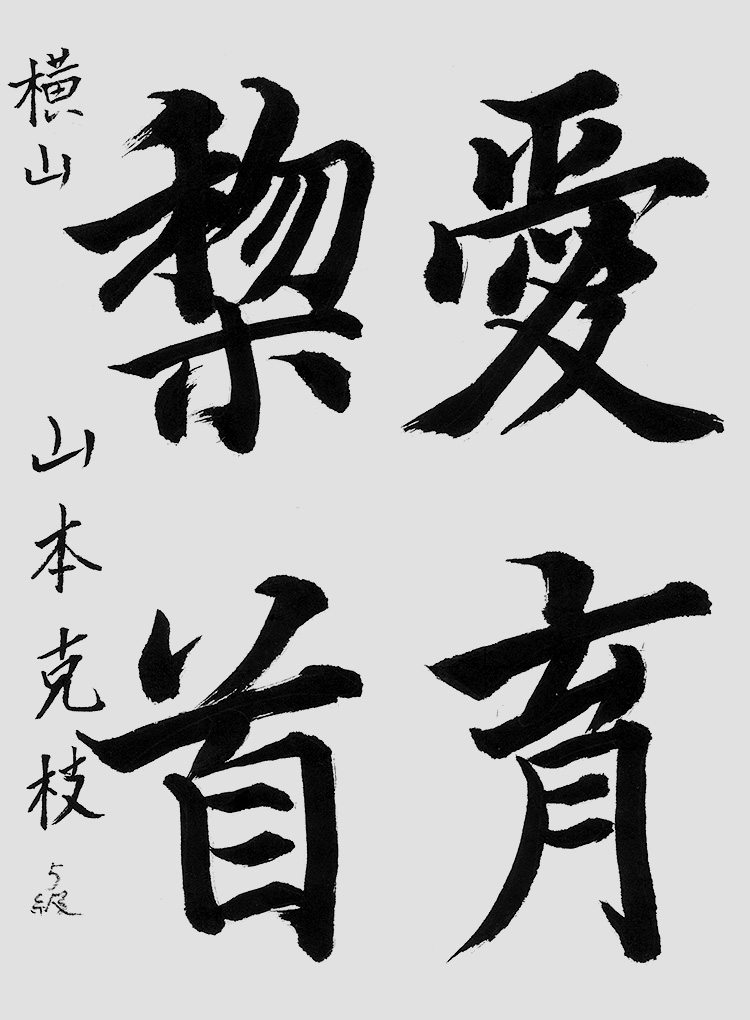 愛育
黎首
横山 山本克枝 5級